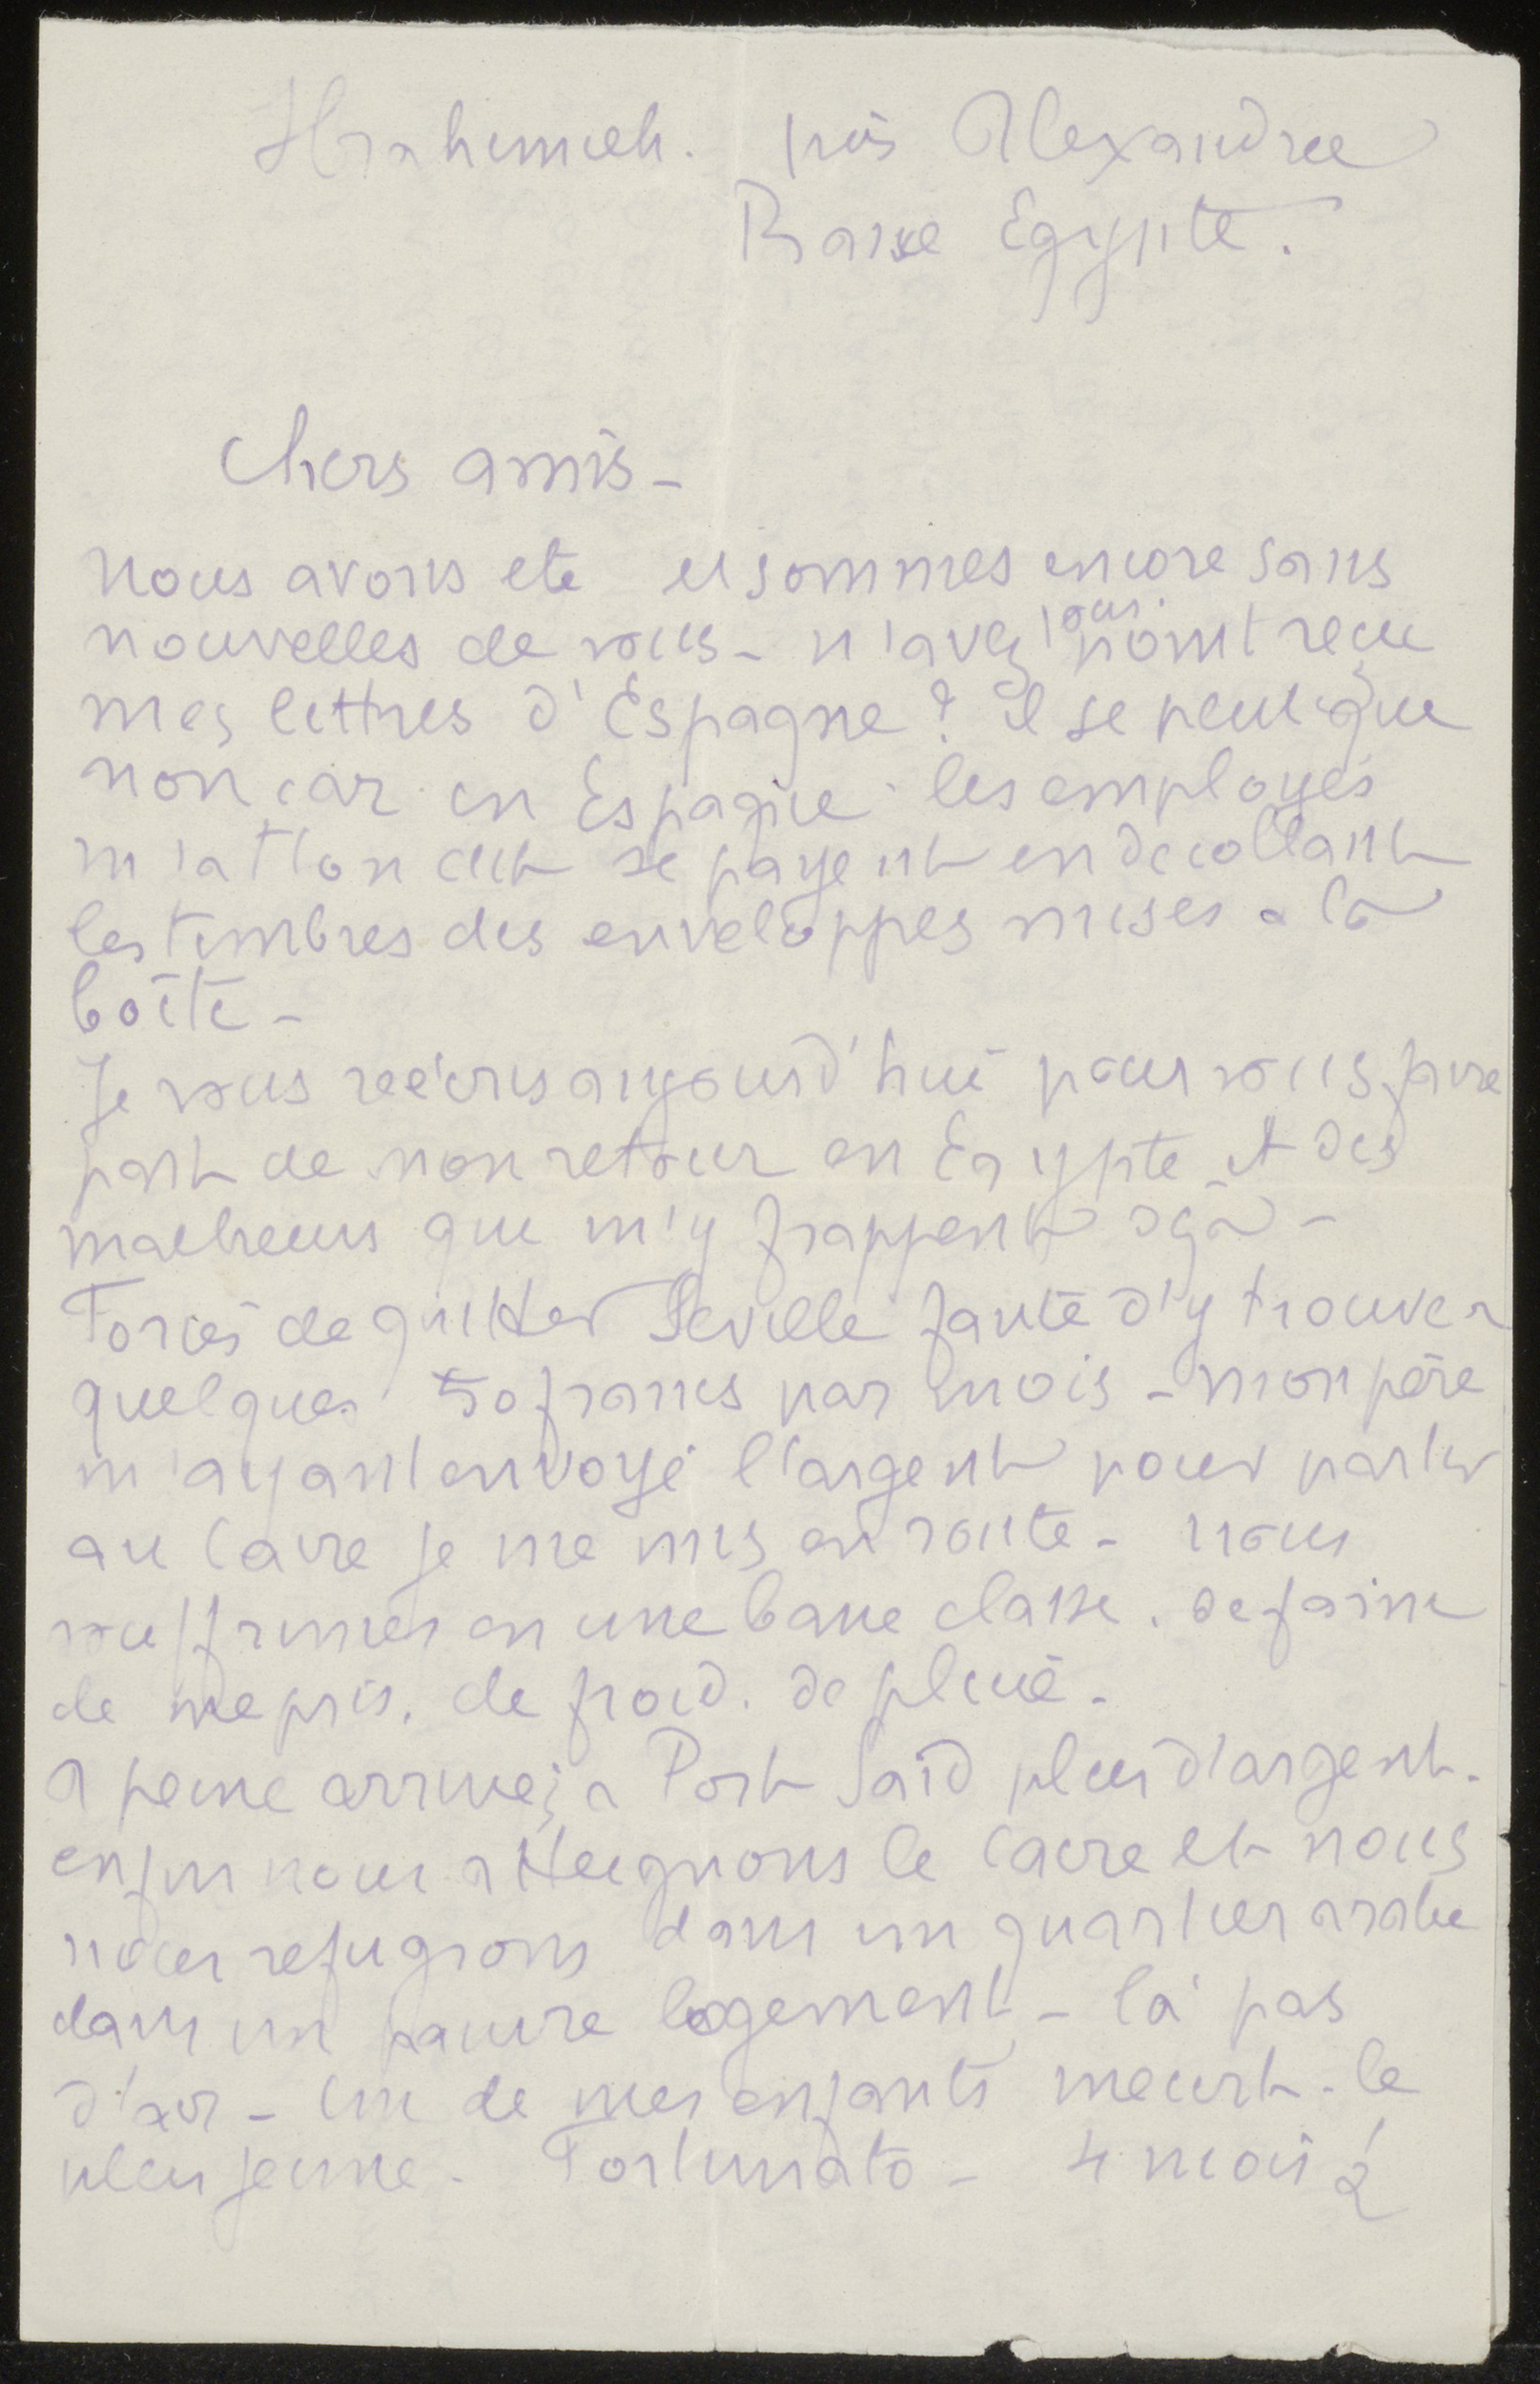 Ibrahimieh. près Alexandrie
Basse Egypte.
Chers amis -
nous avons ete et sommes encore sans
nouvelles de vous - n'avez vous point reçu
mes lettres d'Espagne? il se peut que
non car en Espagne les employés
m'a t'on dit se payent en decollant
les timbres des enveloppes mises a la
boîte -
Je vous reécris aujourd'hui pour vous faire
part de mon retour en Egypte et des
malheurs que m'y frappent dejà -
Forcés de quitter Seville faute d'y trouver
quelques 50 francs par mois - mon père
m'ayant envoyé l'argent pour partir
au Caire je me mis en route - nous
souffrimes en une basse classe. de faim
de mepris. de froid. de pluie.
a peine arrivés a Port Saïd plus d'argent.
enfin nous atteignons le Caire et nous
nous refugions dans un quartier arabe
dans un pauvre logement - là pas
d'air - un de mes enfants meurt - le
plus jeune. Fortunato - 4 mois ½